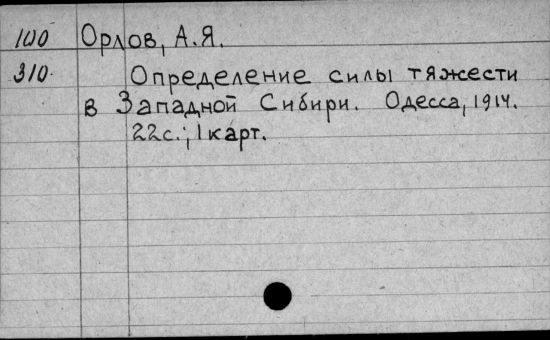 100 Орлов, А.Я.
310. Определение силы тяжести
в Западной Сибири. Одесса, 1914.
22с.; 1 карт.